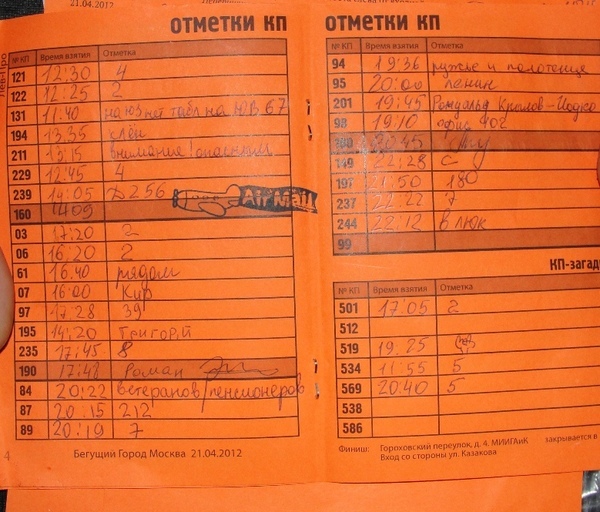 21.04.2012
отметки кп
№ КП Время взятия Отметка
121 12:30 4
122 12:25 2
131 11:40 на юз нет табл на ЮВ 67
194 13:35 клён
211 13:15 внимание! опасным
229 12:45 4
239 14:05 D256
160 1409 Air Mail
03 17:20 2
06 16:20 2
61 16.40 рядом
07 16:00 Кир
97 17.28 39
195 14:20 Григорий
235 17:45 8
190 17:48 Роман
84 20:22 ветеранов/пенсионеров
87 20:15 212
89 20:19 7
4 Бегущий Город Москва 21.04.2012
отметки кп
№ КП Время взятия Отметка
94 19:36 ружье и полотенце
95 20:00 Ленин
201 19:45 Ромуальд Крылов-Иодко
98 19:10 офис 402
20:45
149 22:28 С
197 21:50 180
237 22:22 7
244 22:12 в люк
99
КП-загад
№ КП Время взятия Отметка
501 17:05 2
512
519 19.25
534 11:55 5
569 20:40 5
538
586
Финиш: Гороховский переулок, д. 4. МИИГАиК закрывается в
Вход со стороны ул. Казакова